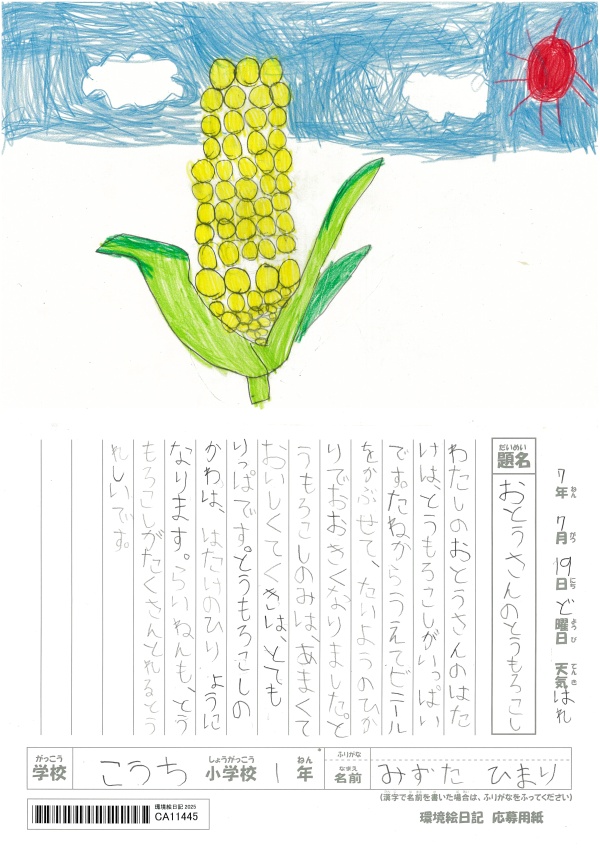 7年 7月 19日 ど曜日 天気 はれ
ねん がつ にち ようび てんき
だいめい
題名
おとうさんのとうもろこし
わたしのおとうさんのはた
けは、とうもろこしがいっぱい
です。たねからうえてビニール
をかぶせて、たいようのひか
りでおおきくなりました。と
うもろこしのみは、あまくて
おいしくてくきは、とても
りっぱです。とうもろこしの
かわは、はたけのひりょうに
なります。らいねんも、とう
もろこしがたくさんとれるとう
れしいです。
がっこう しょうがっこう ねん ふりがな
学校 こうち 小学校 1年
なまえ
名前 みずた ひまり
(漢字で名前を書いた場合は、ふりがなをふってください)
環境絵日記 2025
CA11445
環境絵日記 応募用紙